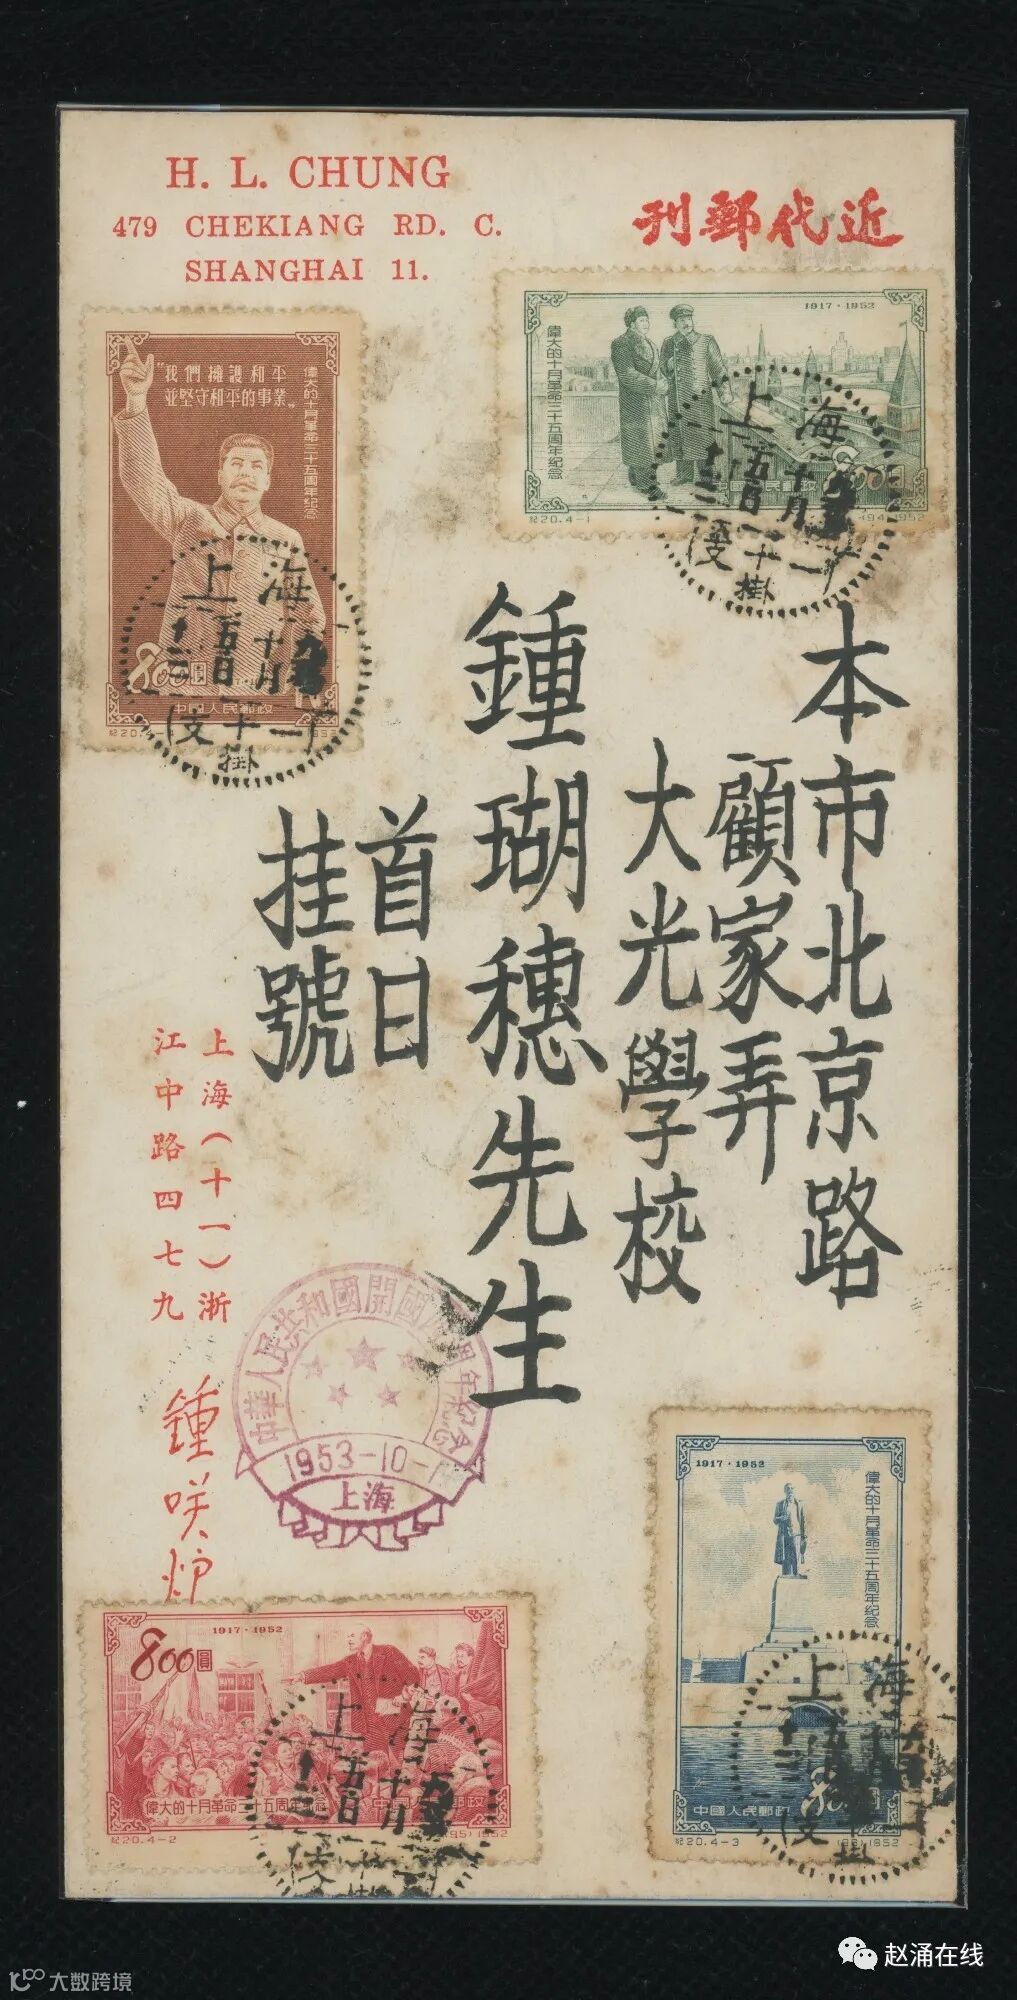 H. L. CHUNG
479 CHEKIANG RD. C.
SHANGHAI 11.
近代郵刊
"我們擁護和平
並堅守和平的事業"
偉大的十月革命三十五周年紀念
800圓
中國人民郵政
紀20.4-
1952
1917·1952
偉大的十月革命三十五周年紀念
800圓
中國人民郵政
紀20.4-1
1952
上海
十月
五日
十二
掛
上海
十月
五日
十二
支
掛
本市北京路
顧家弄
大光學校
鍾瑚穗先生
首日
挂號
上海(十一)浙
江中路四七九
鍾咲炉
中華人民共和國開國周年紀念
1953-10-1
上海
1917·1952
800圓
偉大的十月革命三十五周年紀念
中國人民郵政
紀20.4-2
(195)1952
上海
五日
十月
1917·1952
偉大的十月革命三十五周年紀念
中國人民郵政
紀20.4-3
(196)1952
上海
支
赵涌在线
大数跨境